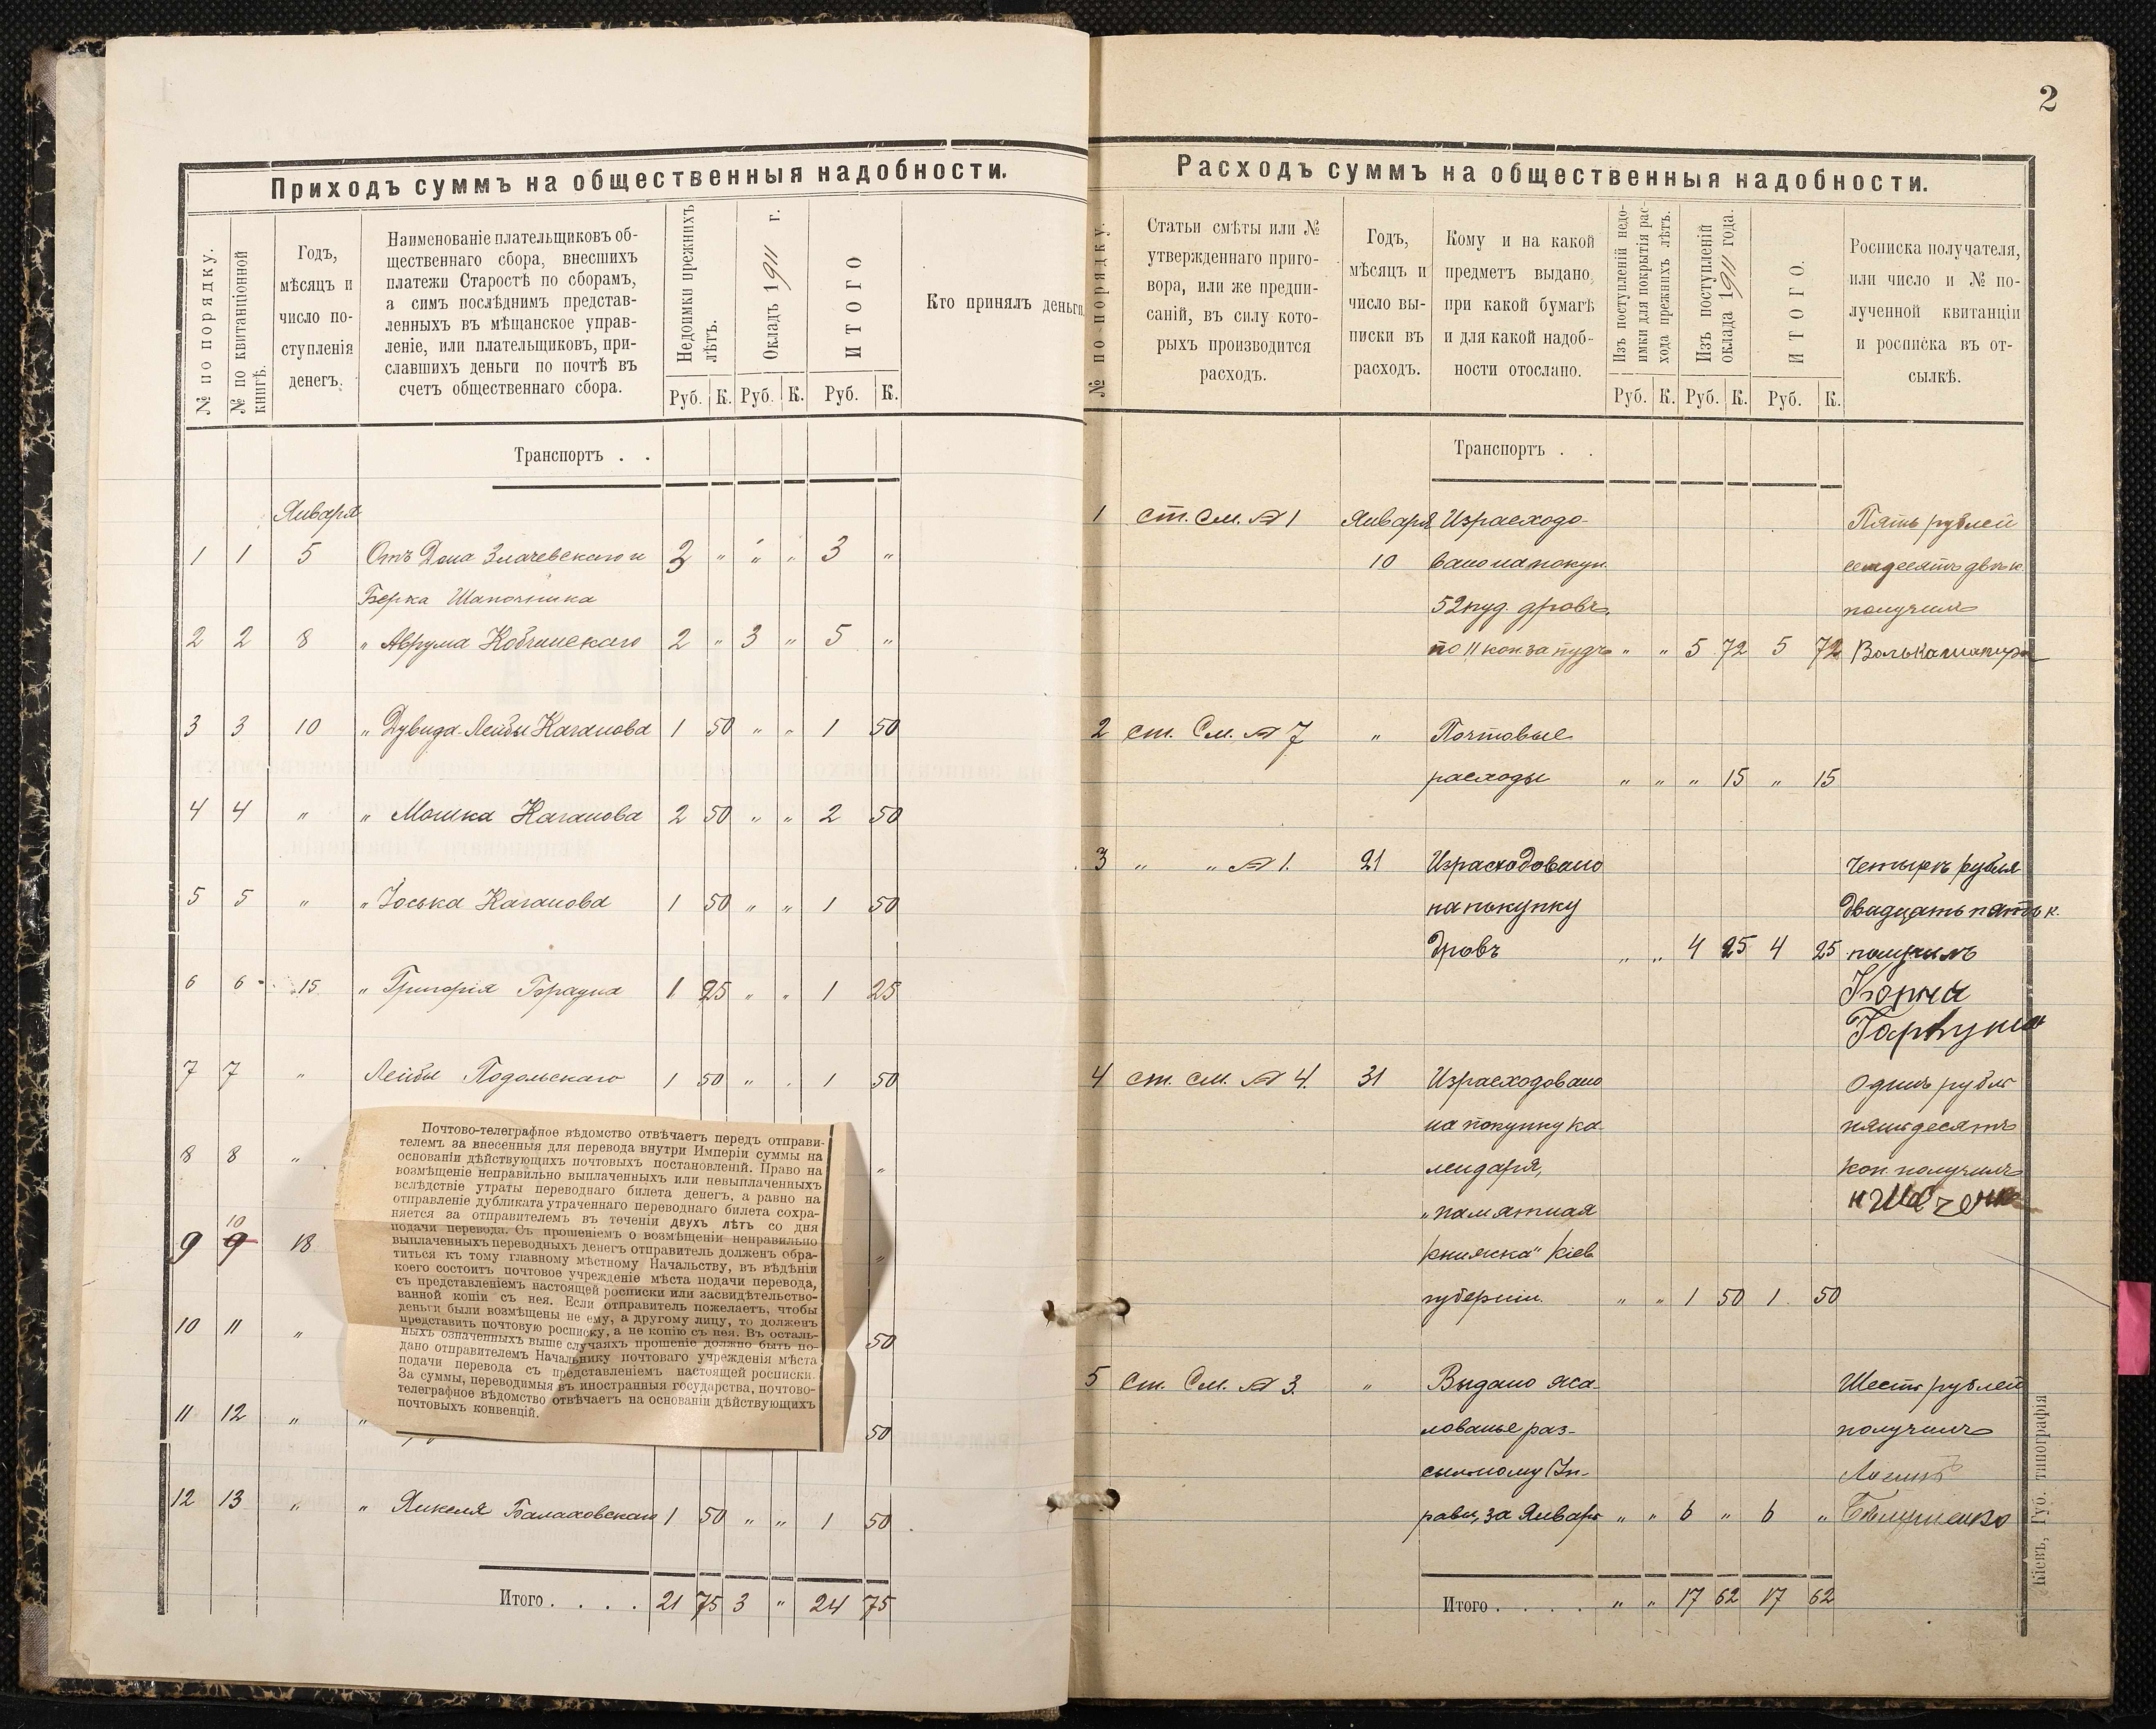 2
Приходъ суммъ на общественныя надобности.
№ по порядку.
№ по квитанціонной
книгѣ.
Годъ,
мѣсяцъ и
число по-
ступленія
денегъ.
Наименованіе плательщиковъ об-
щественнаго сбора, внесшихъ
платежи Старостѣ по сборамъ,
а симъ послѣднимъ представ-
ленныхъ въ мѣщанское управ-
леніе, или плательщиковъ, при-
славшихъ деньги по почтѣ въ
счетъ общественнаго сбора.
Недоимки прежнихъ
лѣтъ.
Окладъ 1911 г.
ИТОГО
Кто принялъ деньги.
Руб. К. Руб. К. Руб. К.
Транспортъ . .
Января
1 1 5 Отъ Дона Злачевскаго и 3 " " " 3 "
Берка Шапочника
2 2 8 " Аврума Кобринскаго 2 " 3 " 5 "
3 3 10 " Дувида-Лейбы Каганова 1 50 " " 1 50
4 4 " " Мошка Каганова 2 50 " " 2 50
5 5 " " Іоська Каганова 1 50 " " 1 50
6 6 15 " Григорія Брауна 1 25 " " 1 25
7 7 " Лейбы Подольскаго 1 50 " " 1 50
8 8 " "
10
9 9 18 "
10 11 " 50
11 12 " " 50
12 13 " " Янкеля Балаховскаго 1 50 " " 1 50
Итого . . . . 21 75 3 " 24 75
Почтово-телеграфное вѣдомство отвѣчаетъ передъ отправи-
телемъ за внесенныя для перевода внутри Имперіи суммы на
основаніи дѣйствующихъ почтовыхъ постановленій. Право на
возмѣщеніе неправильно выплаченныхъ или невыплаченныхъ
вслѣдствіе утраты переводнаго билета денегъ, а равно на
отправленіе дубликата утраченнаго переводнаго билета сохра-
няется за отправителемъ въ теченіи двухъ лѣтъ со дня
подачи перевода. Съ прошеніемъ о возмѣщеніи неправильно
выплаченныхъ переводныхъ денегъ отправитель долженъ обра-
титься къ тому главному мѣстному Начальству, въ вѣдѣніи
коего состоитъ почтовое учрежденіе мѣста подачи перевода,
съ представленіемъ настоящей росписки или засвидѣтельство-
ванной копіи съ нея. Если отправитель пожелаетъ, чтобы
деньги были возмѣщены не ему, а другому лицу, то долженъ
представить почтовую росписку, а не копію съ нея. Въ осталь-
ныхъ означенныхъ выше случаяхъ прошеніе должно быть по-
дано отправителемъ Начальнику почтоваго учрежденія мѣста
подачи перевода съ представленіемъ настоящей росписки.
За суммы, переводимыя въ иностранныя государства, почтово-
телеграфное вѣдомство отвѣчаетъ на основаніи дѣйствующихъ
почтовыхъ конвенцій.
Расходъ суммъ на общественныя надобности.
№ по порядку.
Статьи смѣты или №
утвержденнаго приго-
вора, или же предпи-
саній, въ силу кото-
рыхъ производится
расходъ.
Годъ,
мѣсяцъ и
число вы-
писки въ
расходъ.
Кому и на какой
предметъ выдано,
при какой бумагѣ
и для какой надоб-
ности отослано.
Изъ поступленій недо-
имки для покрытія рас-
хода прежнихъ лѣтъ.
Изъ поступленій
оклада 1911 года.
ИТОГО.
Росписка получателя,
или число и № по-
лученной квитанціи
и росписка въ от-
сылкѣ.
Руб. К. Руб. К. Руб. К.
Транспортъ . .
1 ст. См. № 1 Января Израсходо- Пять рублей
10 вано на покуп. семдесятъ двѣ к.
52 пуд. дровъ, получилъ
по 11 коп за пудъ " " 5 72 5 72
2 ст. См. № 7 " Почтовые
расходы " " " 15 " 15
3 " " № 1. 21 Израсходовано Четыре рубля
на покупку двадцать пять к.
дровъ " " 4 25 4 25 получилъ
4 ст. см. № 4. 31 Израсходовано Одинъ рубль
на покупку ка- пятьдесятъ
лендаря, коп. получилъ
"памятная
книжка" Кіев
губерніи. " " 1 50 1 50
5 Ст. См. № 3. " Выдано жа- Шесть рублей
лованье раз- получилъ
сыльному Уп-
равы, за Январь " " 6 " 6 "
Итого . . . . " " 17 62 17 62
Кіевъ, Губ. типографія